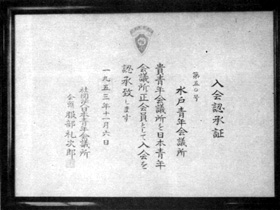 入会認承証
水戸青年会議所
貴青年会議所を日本青年
会議所正会員として入会を
認承致します
一九五三年十一月六日
社団法人日本青年会議所
会頭 服部礼次郎